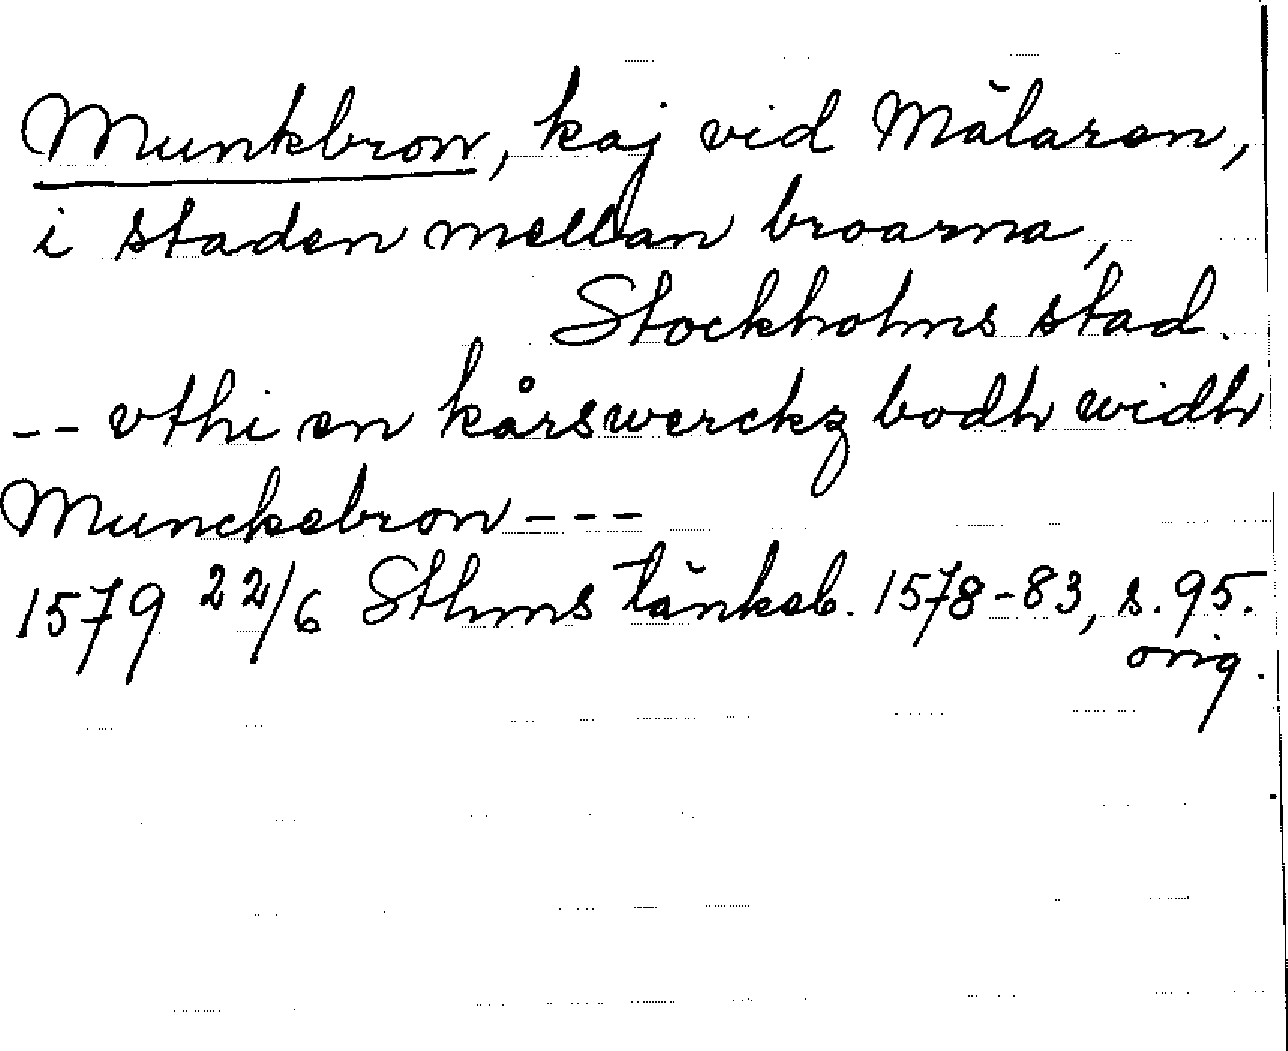 Munkbron, kaj vid Mälaren,
i staden mellan broarna,
Stockholms stad.
-- vthi en kårswerckz bodh widh
Munckebron ---
1579 22/6 Sthms tänkeb. 1578-83, s. 95.
orig.